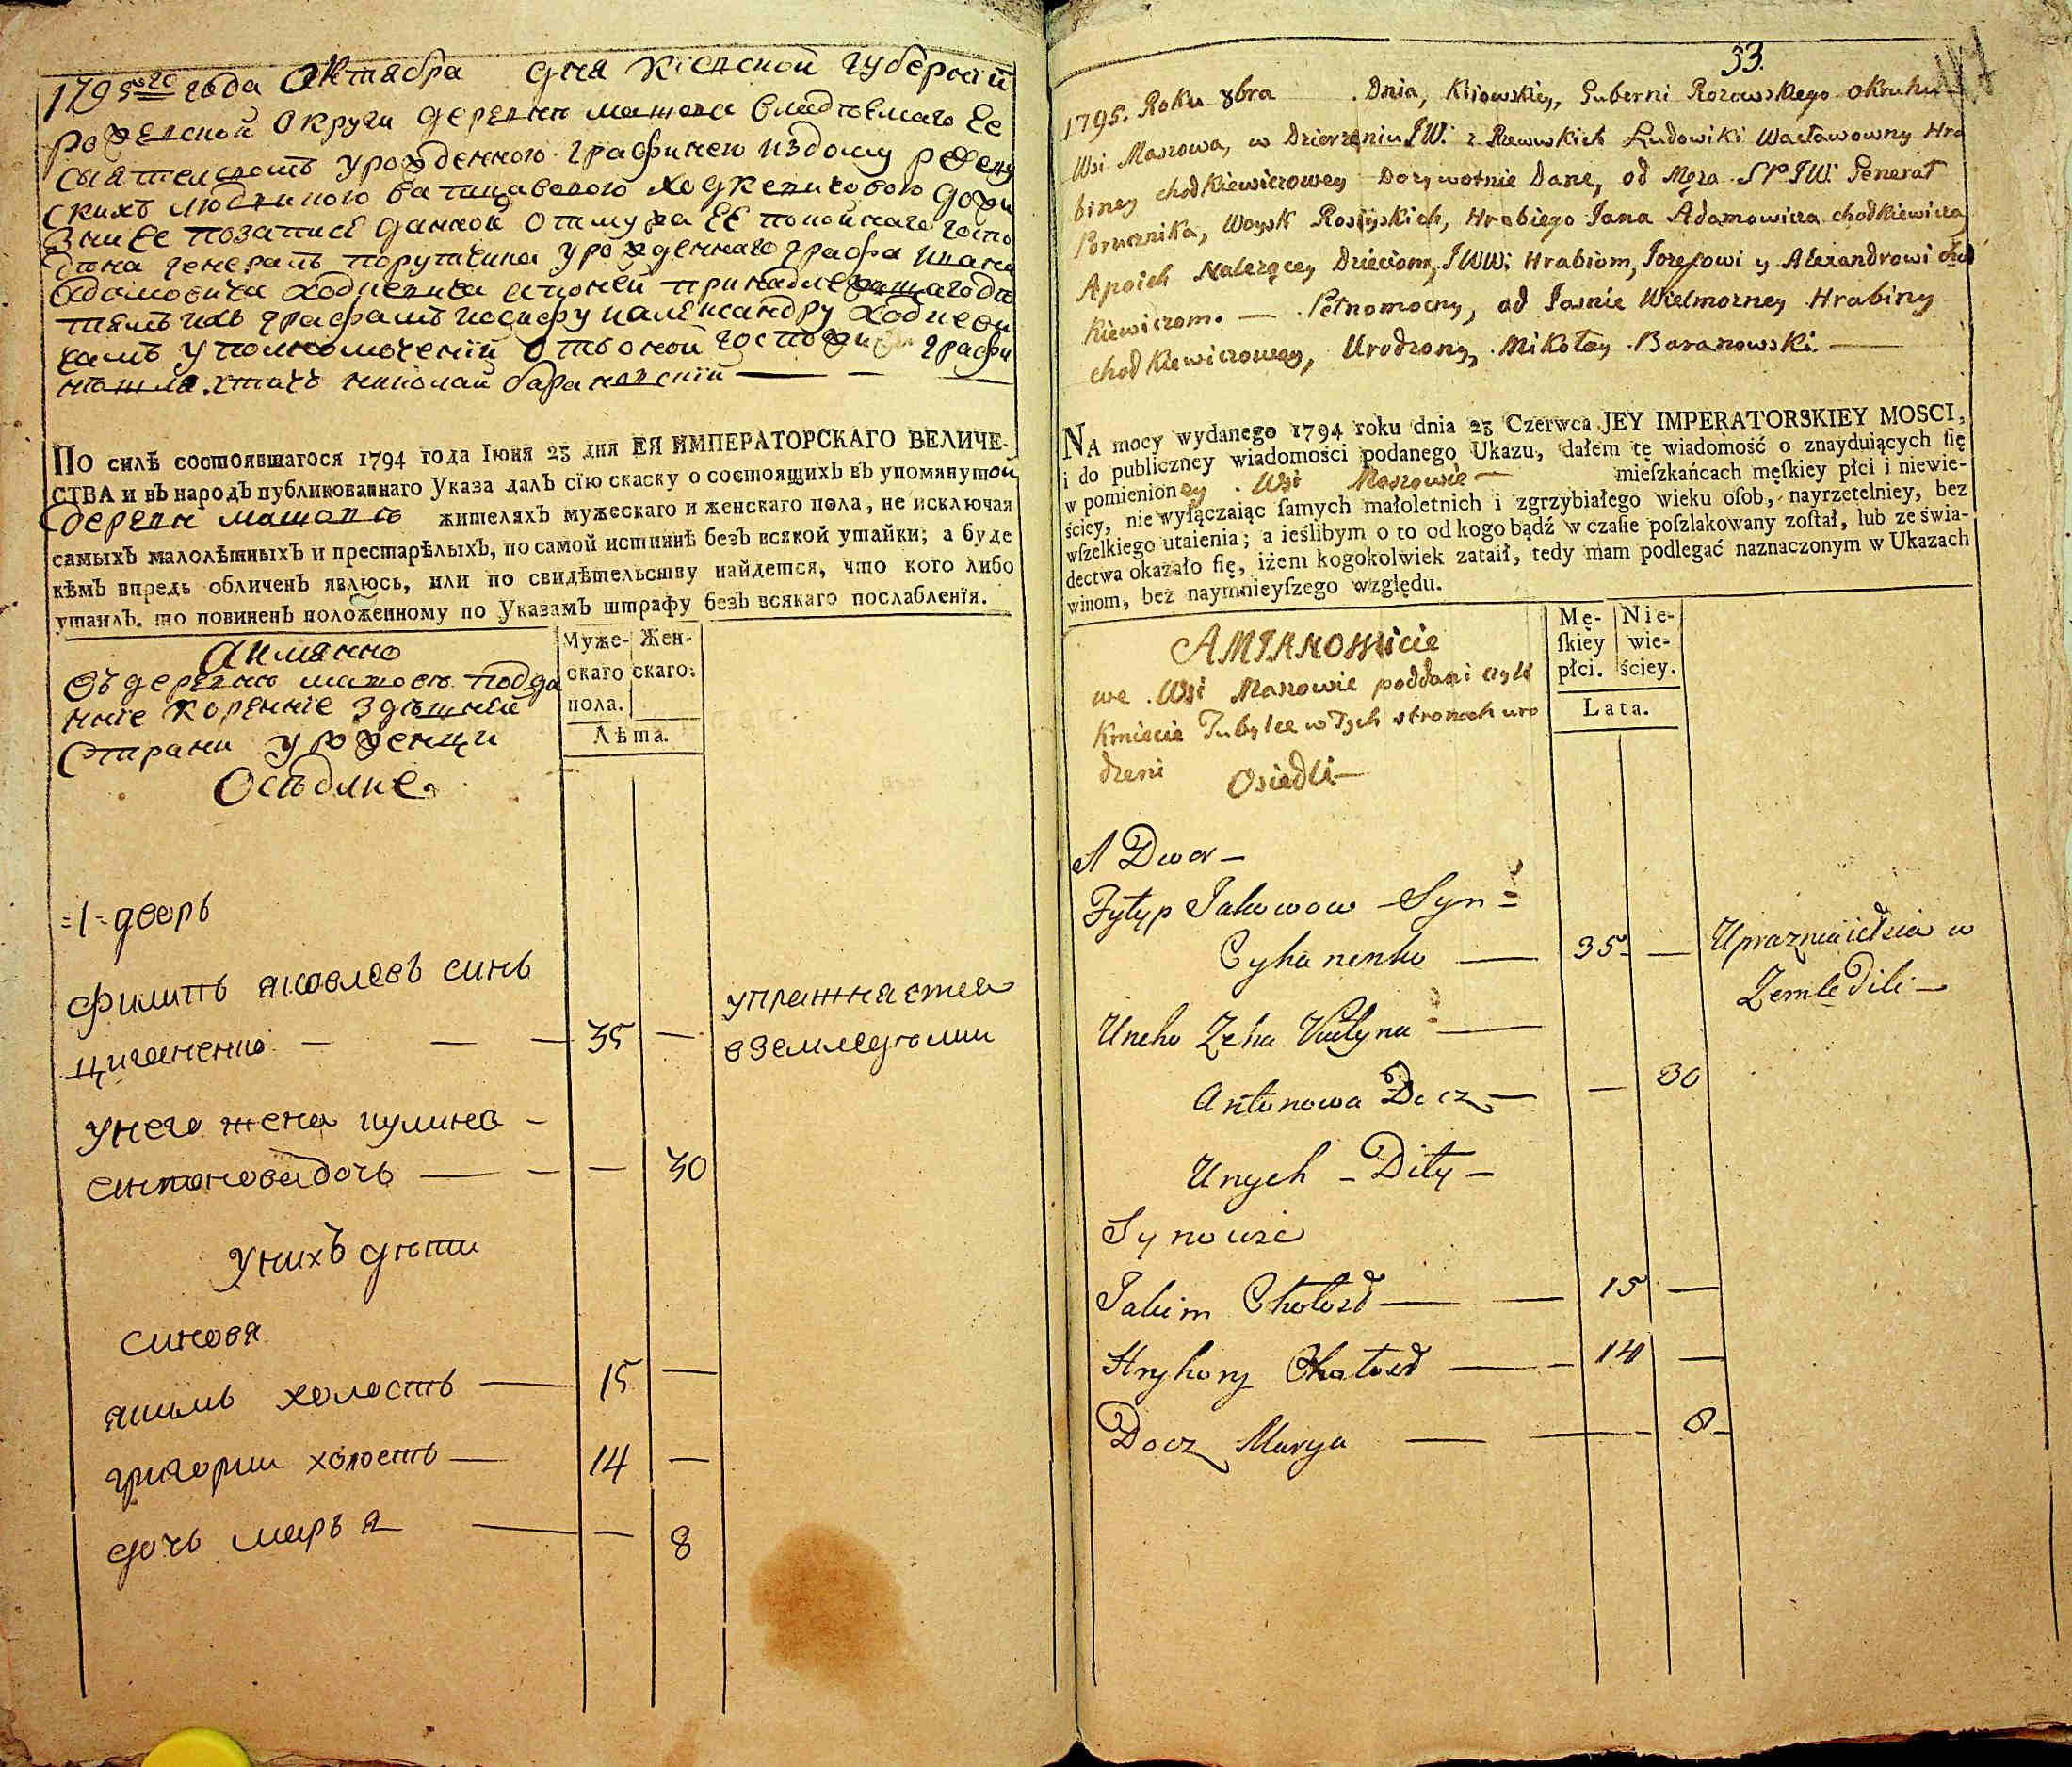 1795го года Октября дня Кіевской губерніи
Рожевской Округи деревни машова владѣемаго Ее
Сыятелскость урожденного графинею Издому ревеу
скихъ людвикою вацлавовою ходкевичовою дожи
Зние позаписе данной отмужа ЕЕ покойнаго госпо
дина генералъ порутчика урожденнаго графа ивана
адамовича ходкевича апоней принадлежащаго дѣ
тямъ ихъ графамъ иосифу иалександру ходкеви
чамъ уполномоченій отъоной госпожи графи
николай барановскій
ПО силѣ состоявшагося 1794 года Іюня 23 дня ЕЯ ИМПЕРАТОРСКАГО ВЕЛИЧЕ-
СТВА и въ народъ публикованнаго Указа далъ сїю скаску о состоящихъ въ упомянутой
деревни машовѣ жителяхъ мужескаго и женскаго пола, не исключая
самыхъ малолѣтныхъ и престарѣлыхъ, по самой истиннѣ безъ всякой утайки; а буде
кѣмъ впредь обличенъ явлюсь, или по свидѣтельству найдется, что кого либо
утаилъ. то повиненъ положенному по Указамъ штрафу безъ всякаго послабленїя.
Аимянно
Въдеревню машовѣ подда
нніе коренніе здѣшней
Страни уроженци
Осѣдліе.
Муже- Жен-
скаго скаго:
пола.
Лѣта.
=1= дворъ
Филипъ яковлевъ синъ
циганенко — — — 35 — упражнается
вземледѣлии
Унего жена иулина —
антонова дочь — — — 30
Унихъ дѣти
синовя
якимъ холостъ — 15 —
григории холостъ — 14 —
дочь маръя — — 8
33.
1795. Roku 8bra . Dnia, Kijowskiey, Guberni Rozowskiego okruhu
Wsi Maszowa, w Dzierzeniu JW: z Rzewuskich Ludowiki Wacławowny Hra
biney chodkiewiczowey Dozywotnie Dane, od Męża SP JW: Generał
Porucznika, Woysk Rossyiskich, Hrabiego Jana Adamowicza chodkiewicza,
Apoich Nalezącey Dzieciom, JWW: Hrabiom, Jozefowi y Alexandrowi chod
kiewiczom. — Pełnomocny, od Jasnie Wielmozney Hrabiny
chodkiewiczowey, Urodzony, Mikołay Baranowski. —
NA mocy wydanego 1794 roku dnia 23 Czerwca JEY IMPERATORSKIEY MOSCI,
i do publiczney wiadomości podanego Ukazu, dałem tę wiadomość o znayduiących ſię
w pomienioney Wsi Maszowie — mieſzkańcach męſkiey płci i niewie-
ściey, nie wyłączaiąc ſamych małoletnich i zgrzybiałego wieku oſob, nayrzetelniey, bez
wſzelkiego utaienia; a ieślibym o to od kogo bądź w czaſie poſzlakowany zoſtał, lub ze świa-
dectwa okazało ſię, iżem kogokolwiek zataił, tedy mam podlegać naznaczonym w Ukazach
winom, bez naymnieyſzego względu.
AMIANOwicie
we Wsi Maszowie poddani czyli
Kmiecie Tubylce w Tych stronach uro
dzeni
Osiedli —
Mę- Nie-
ſkiey wie-
płci. ściey.
Lata.
1 Dwor —
Fyłyp Jakowow — Syn =
Cyhanenko — 35 — Uprazniaietsia w
Zemledili —
Uneho Zena Kulyna —
Antonowa Docz — — 30
Unych — Dity —
Synowie
Jakim Chołost — — 15 —
Hryhory Chołost — — 14 —
Docz Marya — — 8 —